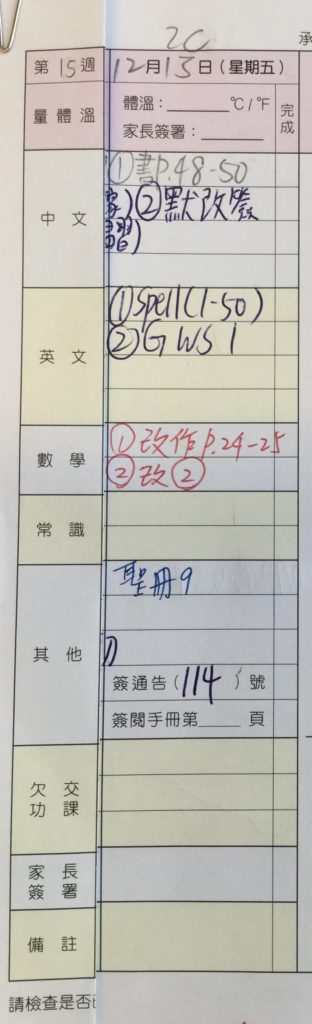 2C
承
第15週 12月13日(星期五)
量體溫 體溫:______°C/°F 完成
家長簽署:______
中文 ①書P.48-50
家)②默改簽
習)
英文 ①Spell(1-50)
②GWS 1
數學 ①改作P.24-25
②改②
常識
其他 聖冊9
簽通告(114)號
簽閱手冊第____頁
欠交功課
家長簽署
備註
請檢查是否已